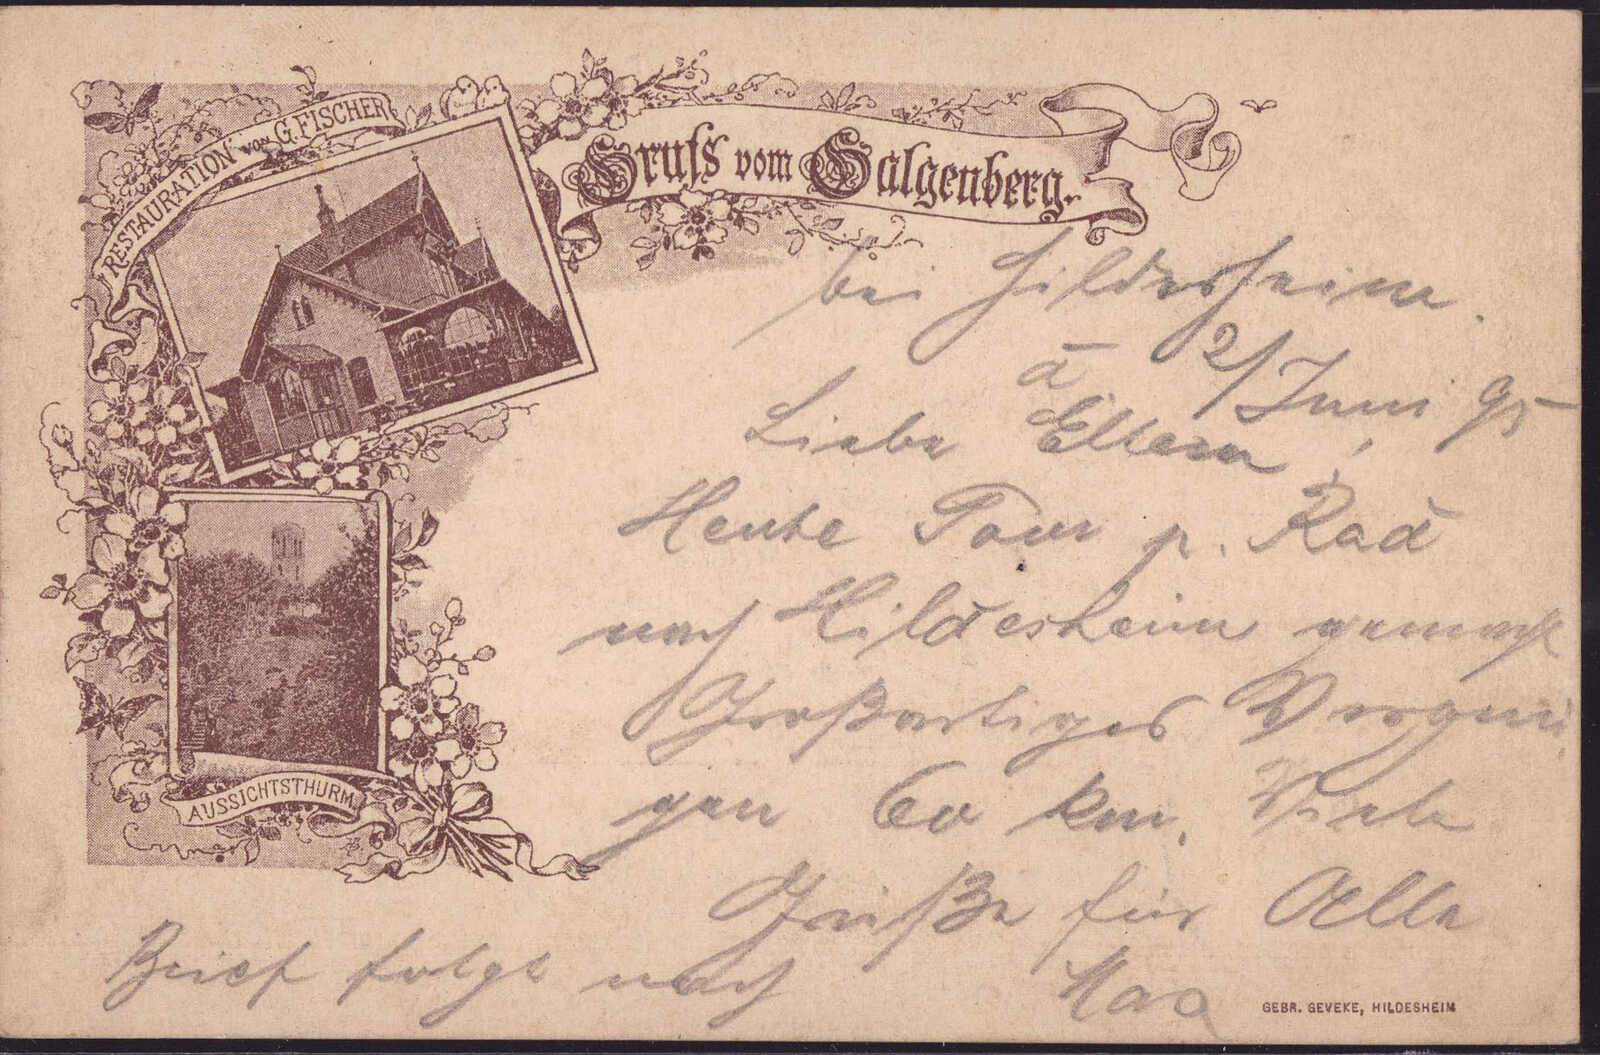 RESTAURATION VON G. FISCHER
Gruss vom Galgenberg.
bei Hildesheim.
d 2/Juni 95
Liebe Eltern!
Heute Tour p. Rad
nach Hildesheim gemacht
Großartiges Vergnü
gen 60 km. Viele
Grüße für Alle
Brief folgt nach
AUSSICHTSTHURM.
GEBR. GEVEKE, HILDESHEIM